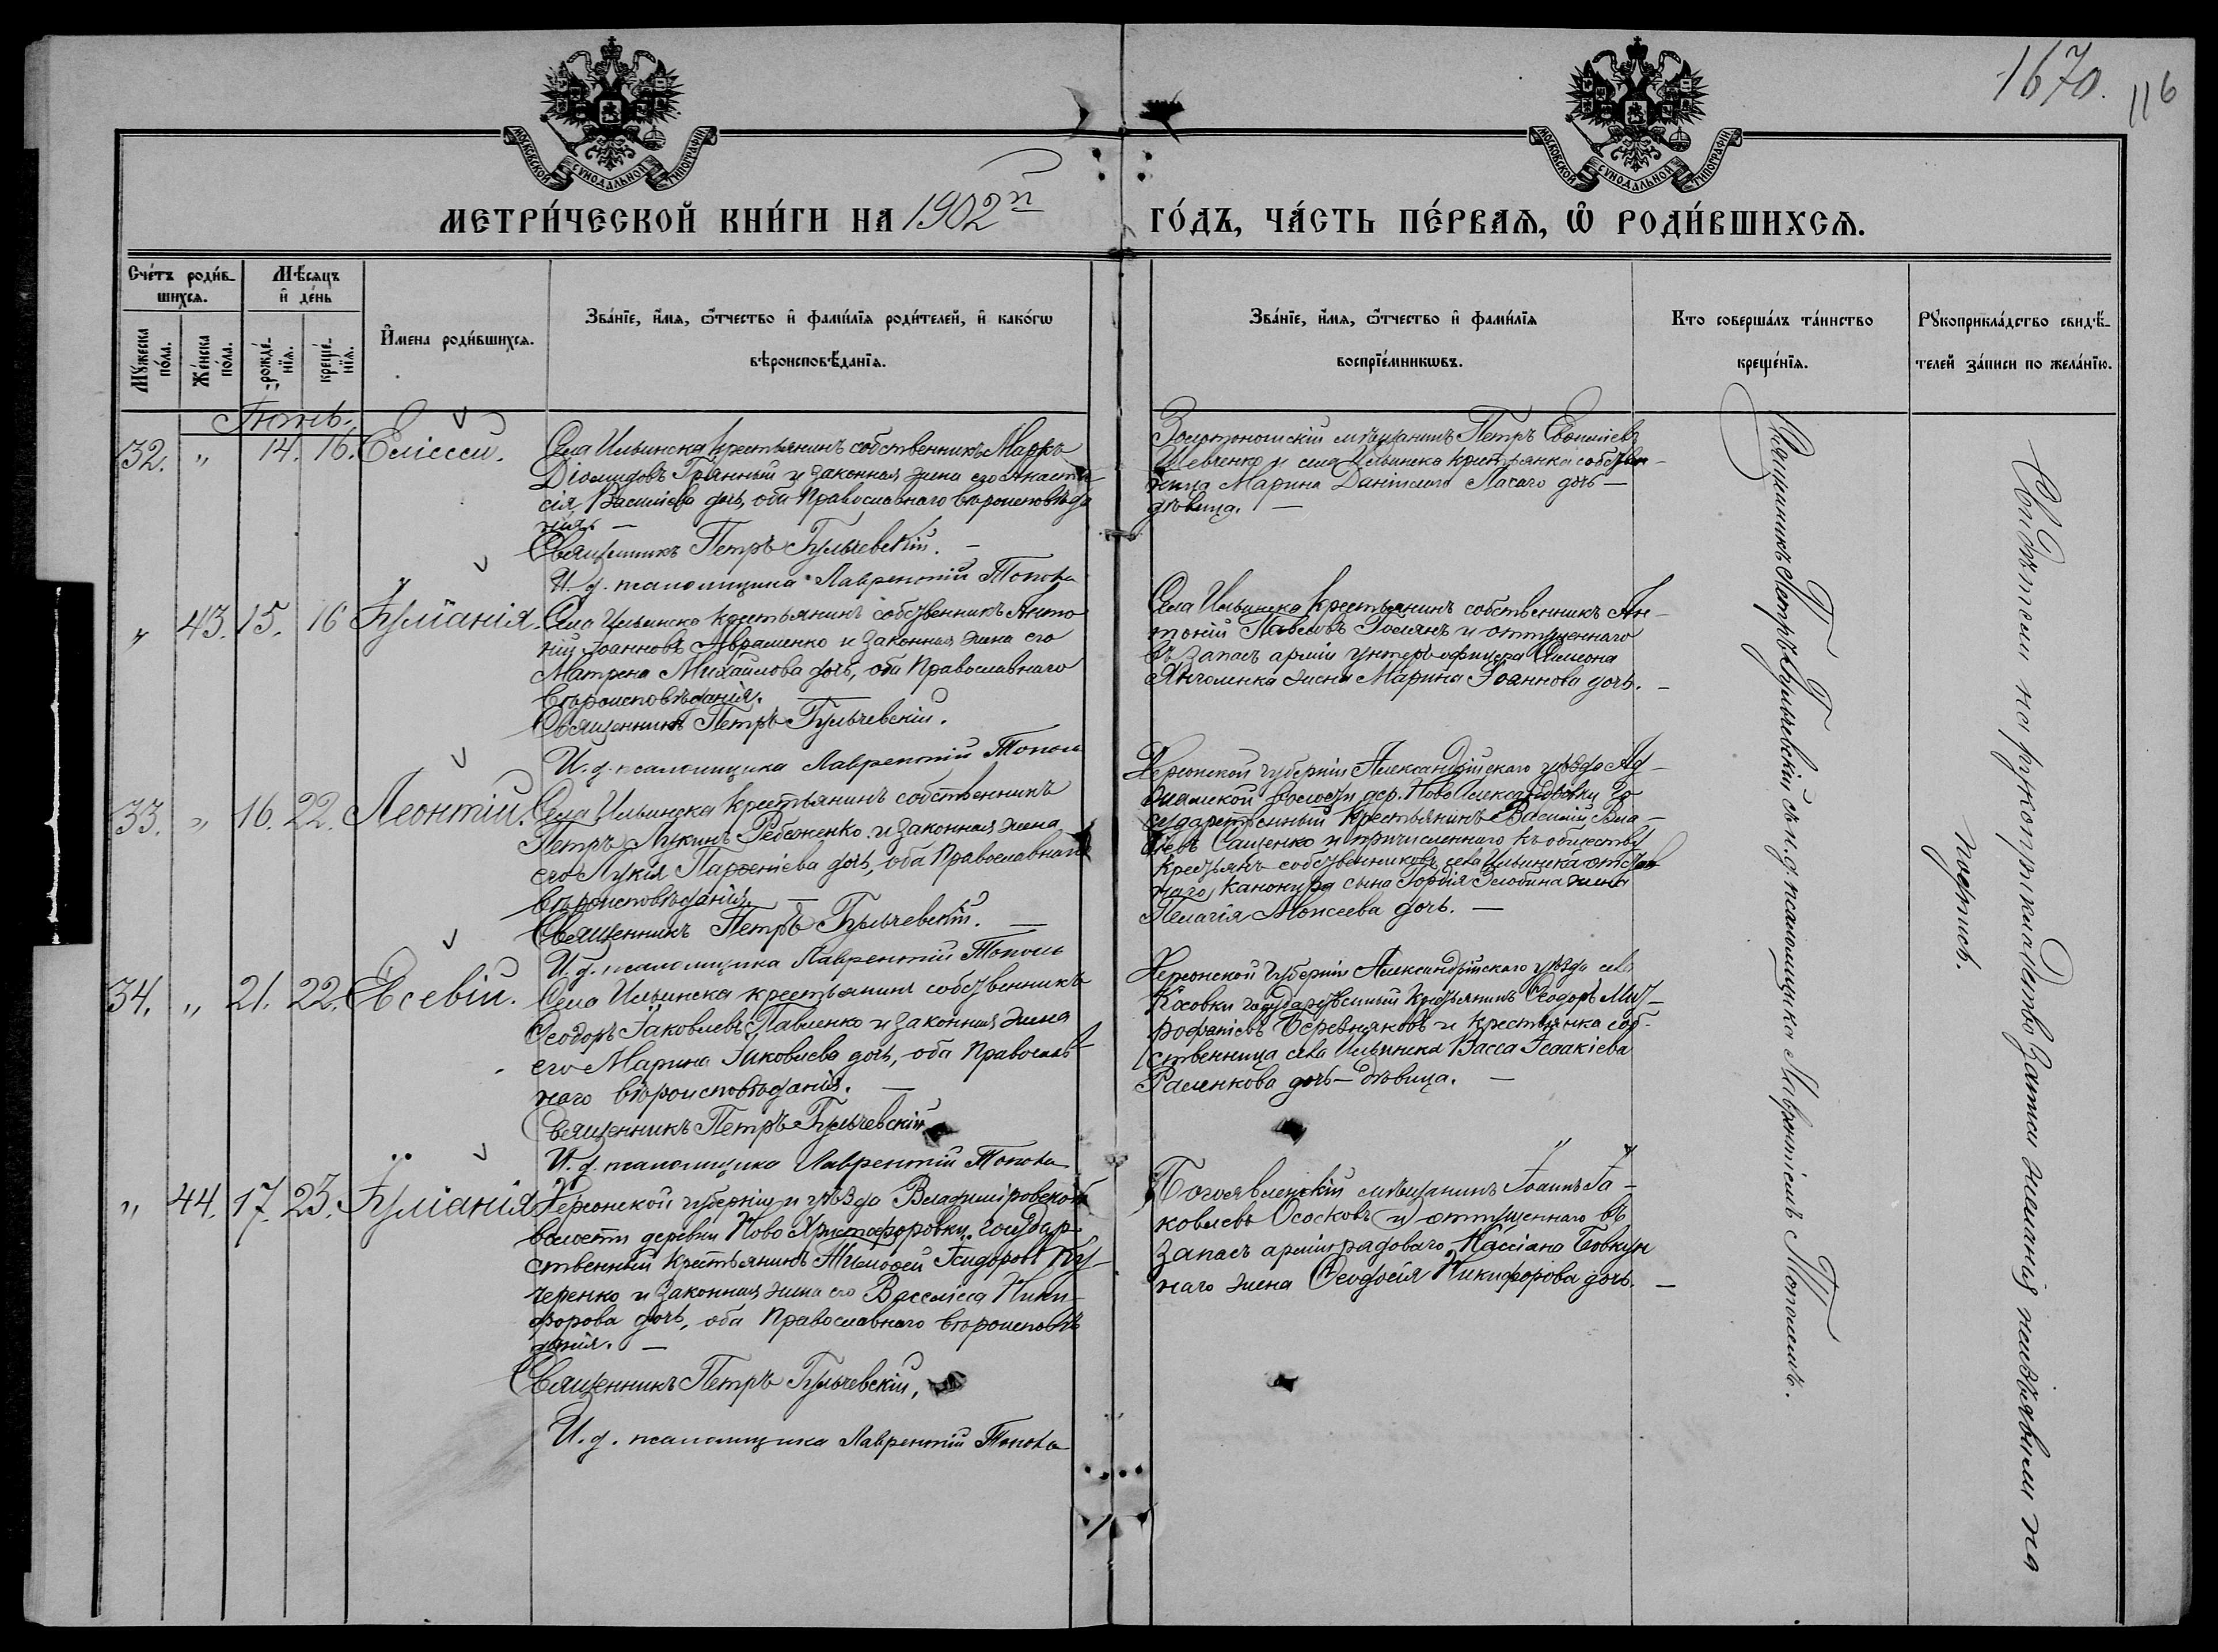 1670.
116
МОСКОВСКОЙ СѴНОДАЛЬНОЙ ТИПОГРАФІИ
МОСКОВСКОЙ СѴНОДАЛЬНОЙ ТИПОГРАФІИ
МЕТРИ́ЧЕСКОЙ КНИ́ГИ НА 1902й
ГО́ДЪ, ЧА́СТЬ ПЕ́РВАѦ, Ѡ҆ РОДИ́ВШИХСѦ.
Сче́тъ роди́в-
шихсѧ.
Мꙋ́жеска по́ла.
Же́нска по́ла.
Мѣ́сѧцъ
и҆ де́нь
рожде́-нїѧ.
креще́-нїѧ.
И҆мена роди́вшихсѧ.
Зва́нїе, и҆́мѧ, ѻ҆́тчество и҆ фами́лїѧ роди́телей, и҆ како́гѡ
вѣроисповѣ́данїѧ.
Зва́нїе, и҆́мѧ, ѻ҆́тчество и҆ фами́лїѧ
воспрїе́мникѡвъ.
Кто соверша́лъ та́инство
креще́нїѧ.
Рꙋкоприкла́дство свидѣ́-
телей за́писи по жела́нїю.
Іюнь.
32. " 14. 16. Елисей.
Села Ильинска крестьянинъ собственникъ Маркъ
Діомидовъ Гранный и законная жена его Анаста-
сія Василіева дочь, оба Православнаго вѣроисповѣда
нія. —
Священникъ Петръ Бульчевскій. —
И. д. псаломщика Лаврентій Тополь
Золотоношскій мѣщанинъ Петръ Евфиміевъ
Шевченко и села Ильинска крестьянка собствен-
ница Марина Даніилова дочь —
дѣвица. —
" 43. 15. 16 Іуліанія.
Села Ильинска крестьянинъ собственникъ Анто
ній Іоанновъ Авраменко и законная жена его
Матрена Михаилова дочь, оба Православнаго
вѣроисповѣданія. —
Священникъ Петръ Бульчевскій.
И. д. псаломщика Лаврентій Тополь
Села Ильинска крестьянинъ собственникъ Ан-
тоній Павловъ и отпущеннаго
въ запасъ арміи унтеръ-офицера Симеона
жена Марина Іоаннова дочь. —
33. " 16. 22. Леонтій.
Села Ильинска крестьянинъ собственникъ
Петръ Лукинъ Ребоженко и законная жена
его Лукія Парѳеніева дочь, оба Православнаго
вѣроисповѣданія. —
Священникъ Петръ Бульчевскій. —
И. д. псаломщика Лаврентій Тополь
Херсонской губерніи Александрійскаго уѣзда Ад-
жамской волости дер. Ново Александровки Го
сударственный крестьянинъ Василій Вла-
сіевъ Сащенко и причисленнаго къ обществу
крестьянъ собственниковъ села Ильинска отстав
наго канонира сына Гордія Злобина жена
Пелагія Моисеева дочь. —
34. " 21. 22. Евсевій.
Села Ильинска крестьянинъ собственникъ
Ѳеодоръ Іаковлевъ Павленко и законная жена
его Марина Іаковлева дочь, оба Православ-
наго вѣроисповѣданія. —
Священникъ Петръ Бульчевскій
И. д. псаломщика Лаврентій Тополь
Херсонской губерніи Александрійскаго уѣзда села
Косовки государственный крестьянинъ Ѳеодоръ Мит-
рофаніевъ Деревянковъ и крестьянка соб-
ственница села Ильинска Васса Исаакіева
дочь — дѣвица. —
" 44. 17. 23. Іуліанія
Херсонской губерніи и уѣзда Владиміровской
волости деревни Ново Христофоровки государ-
ственный крестьянинъ Тимоѳей Исидоровъ Ку-
черенко и законная жена его Василиса Ники-
форова дочь, оба Православнаго вѣроисповѣ
данія. —
Священникъ Петръ Бульчевскій.
И. д. псаломщика Лаврентій Тополь
Богоявленскій мѣщанинъ Іоаннъ Іа-
ковлевъ Ососковъ и отпущеннаго въ
запасъ арміи рядоваго Кассіана Бовкун
наго жена Ѳеодосія Никифорова дочь. —
Священникъ Петръ Бульчевскій съ и. д. псаломщика Лаврентіемъ Тополемъ.
Свидѣтели на рукоприкладство записи желанія не изъявили на
подпись.